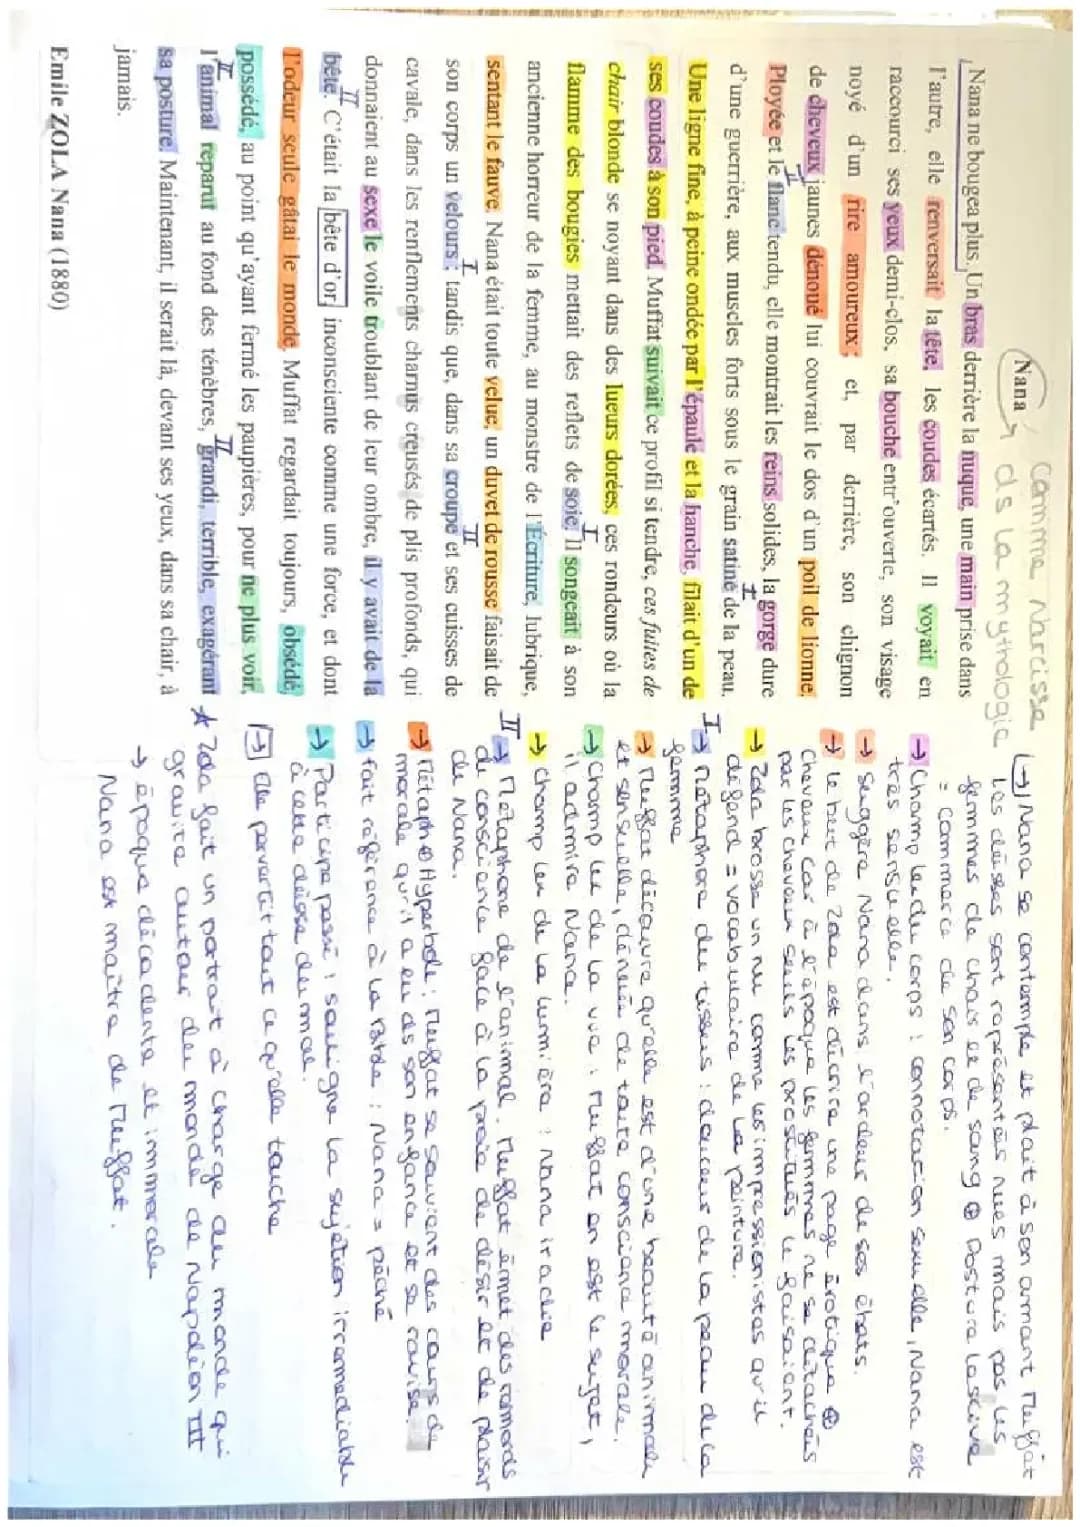 Comme Narcisse
Nana → ds la mythologie
Nana ne bougea plus. Un bras derrière la nuque, une main prise dans
l'autre, elle renversait la tête, les coudes écartés. Il voyait en
raccourci ses yeux demi-clos, sa bouche entr'ouverte, son visage
noyé d'un rire amoureux ; et, par derrière, son chignon
de cheveux jaunes dénoué lui couvrait le dos d'un poil de lionne.
Ployée et le flanc tendu, elle montrait les reins solides, la gorge dure
d'une guerrière, aux muscles forts sous le grain satiné de la peau.
Une ligne fine, à peine ondée par l'épaule et la hanche, filait d'un de
ses coudes à son pied. Muffat suivait ce profil si tendre, ces fuites de
chair blonde se noyant dans des lueurs dorées, ces rondeurs où la
flamme des bougies mettait des reflets de soie. Il songeait à son
ancienne horreur de la femme, au monstre de l'Écriture, lubrique,
sentant le fauve. Nana était toute velue, un duvet de rousse faisait de
son corps un velours ; tandis que, dans sa croupe et ses cuisses de
cavale, dans les renflements charnus creusés de plis profonds, qui
donnaient au sexe le voile troublant de leur ombre, il y avait de la
bête. C'était la bête d'or, inconsciente comme une force, et dont
l'odeur seule gâtai le monde. Muffat regardait toujours, obsédé,
possédé, au point qu'ayant fermé les paupières, pour ne plus voir,
l'animal reparut au fond des ténèbres, grandi, terrible, exagérant
sa posture. Maintenant, il serait là, devant ses yeux, dans sa chair, à
jamais.
Emile ZOLA Nana (1880)
→ Nana se contemple et plait à son amant Muffat
Les déesses sont représentées nues mais pas les
femmes de chair et de sang ⊕ Posture lascive
= commerce de son corps.
→ Champ lex du corps : connotation sexuelle, Nana est
très sensuelle.
→ Suggère Nana dans l'ardeur de ses ébats.
→ le but de Zola est d'écrire une page érotique ⊕
cheveux car à l'époque les femmes ne se détachais
pas les cheveux seuls les prostituées le faisaient.
→ Zola brosse un nu comme les impressionistes qu'il
défend = vocabulaire de la peinture.
I → Métaphore du tissus : douceur de la peau de la
femme
→ Muffat découvre qu'elle est d'une beauté animale
et sensuelle, dénuée de toute conscience morale.
→ Champ lex de la vue : Muffat en est le sujet,
il admire Nana.
→ Champ lex de la lumière : Nana irradie
II → Métaphore de l'animal. Muffat émet des remords
de conscience face à la proie de désir et de plaisir
de Nana.
→ Métaph ⊕ Hyperbole : Muffat se souvient des cours de
morale qu'il a eu ds son enfance et se ravise.
→ fait référence à la Bible : Nana = péché
→ Participe passé : souligne la sujétion irremediable
à cette déesse du mal.
→ elle pervertit tout ce qu'elle touche
★ Zola fait un portrait à charge du monde qui
gravite autour du monde de Napoléon III
→ époque décadente et immorale
Nana est maître de Muffat.